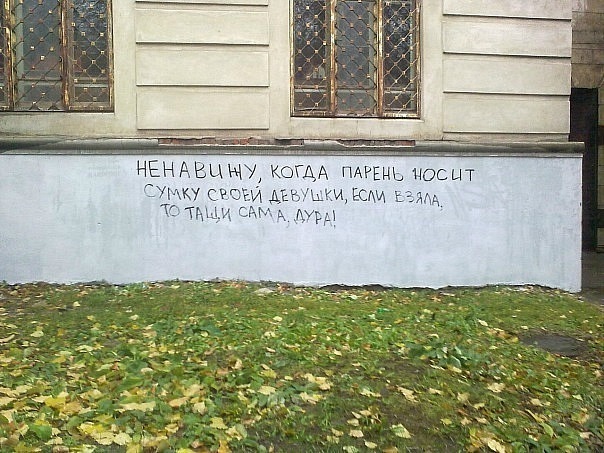 НЕНАВИЖУ, КОГДА ПАРЕНЬ НОСИТ
СУМКУ СВОЕЙ ДЕВУШКИ, ЕСЛИ ВЗЯЛА,
ТО ТАЩИ САМА, ДУРА!